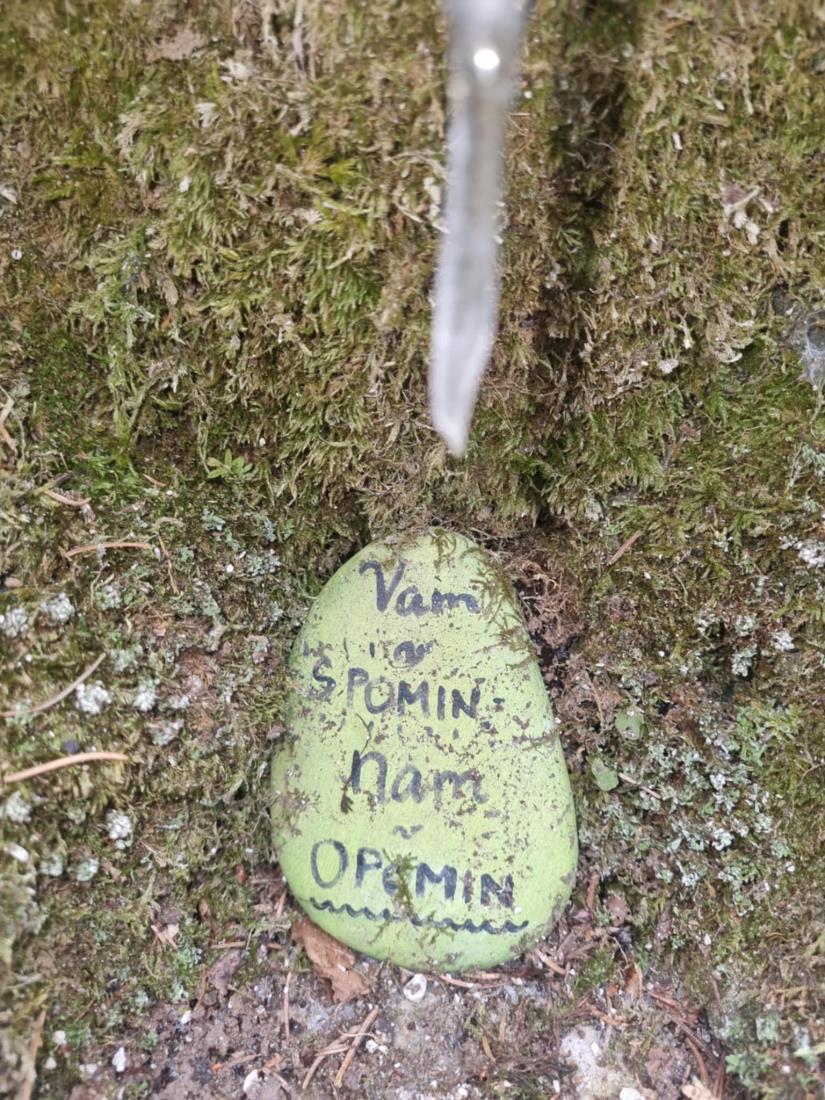 Vam
~
SPOMIN-
nam
~
OPOMIN